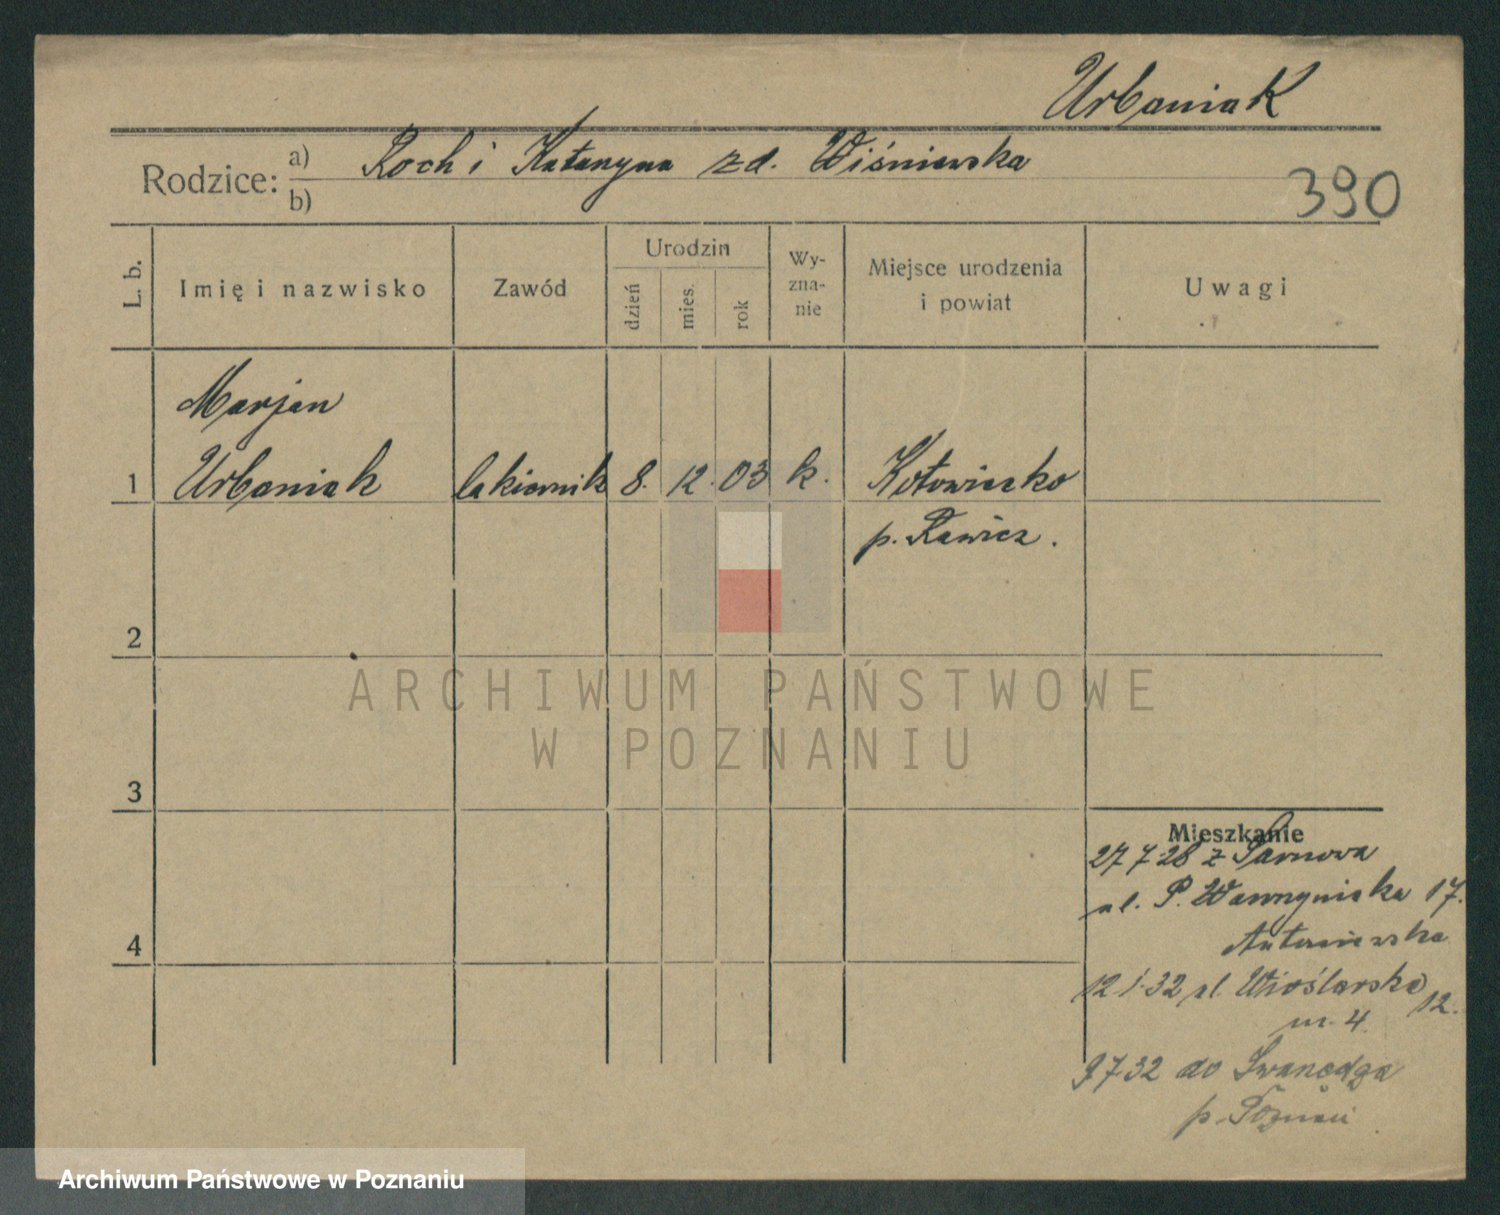 Urbaniak
Rodzice: a) Roch i Katarzyna zd. Wiśniewska
b)
390
L. b.
Imię i nazwisko
Zawód
Urodzin
dzień
mies.
rok
Wy-
zna-
nie
Miejsce urodzenia
i powiat
Uwagi
Marjan
1 Urbaniak lakiernik 8. 12. 03 k. Kołowiecko
p. Rawicz.
2
ARCHIWUM PAŃSTWOWE
W POZNANIU
3
Mieszkanie
27 7 28 z Sarnowa
ul. P. Wawrzyniaka 17.
4
12.1.32 ul. Wioślarska
12.
nr. 4
9 7 32 do Swarzędza
p. Poznań
Archiwum Państwowe w Poznaniu